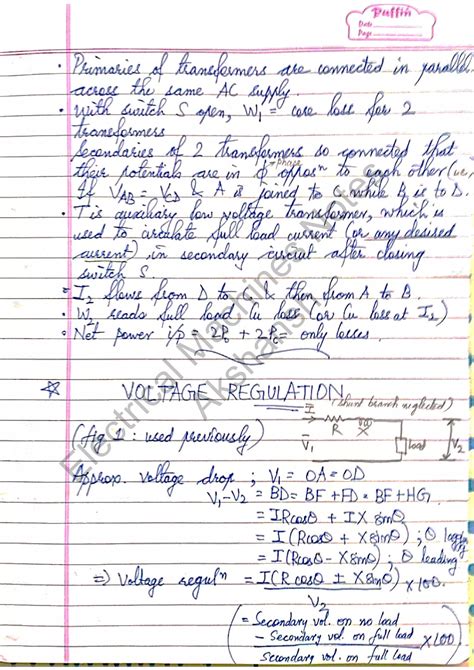 Puffin
Date
Page
• Primaries of transformers are connected in parallel
across the same AC supply.
• With switch S open, W₁ = core loss for 2
transformers
Secondaries of 2 transformers so connected that
their potentials are in phase opposⁿ to each other (i.e.,
If V_AB = V_CD & A is joined to C while B is to D.
• T is auxiliary low voltage transformer, which is
used to circulate full load current (or any desired
current) in secondary circuit after closing
switch S.
= I₂ flows from D to C & then from A to B.
• W₂ reads full load Cu loss (or Cu loss at I₂)
• Net power i/p = 2P₀ + 2Pc = only losses.
☆ VOLTAGE REGULATION
I (shunt branch neglected)
R X
(fig 1 : used previously) V₁ Load V₂
Approx. voltage drop ; V₁ = OA = OD
V₁-V₂ = BD = BF + FD = BF + HG
= IRcosθ + IX sinθ
= I (Rcosθ + Xsinθ) ; θ lagging
= I(Rcosθ - Xsinθ) ; θ leading
⇒ Voltage regulⁿ = I(R cosθ ± X sinθ) × 100.
V₂
(= Secondary vol. on no load
- Secondary vol. on full load × 100)
Secondary vol. on full load
Electrical Machines Notes
Akshansh